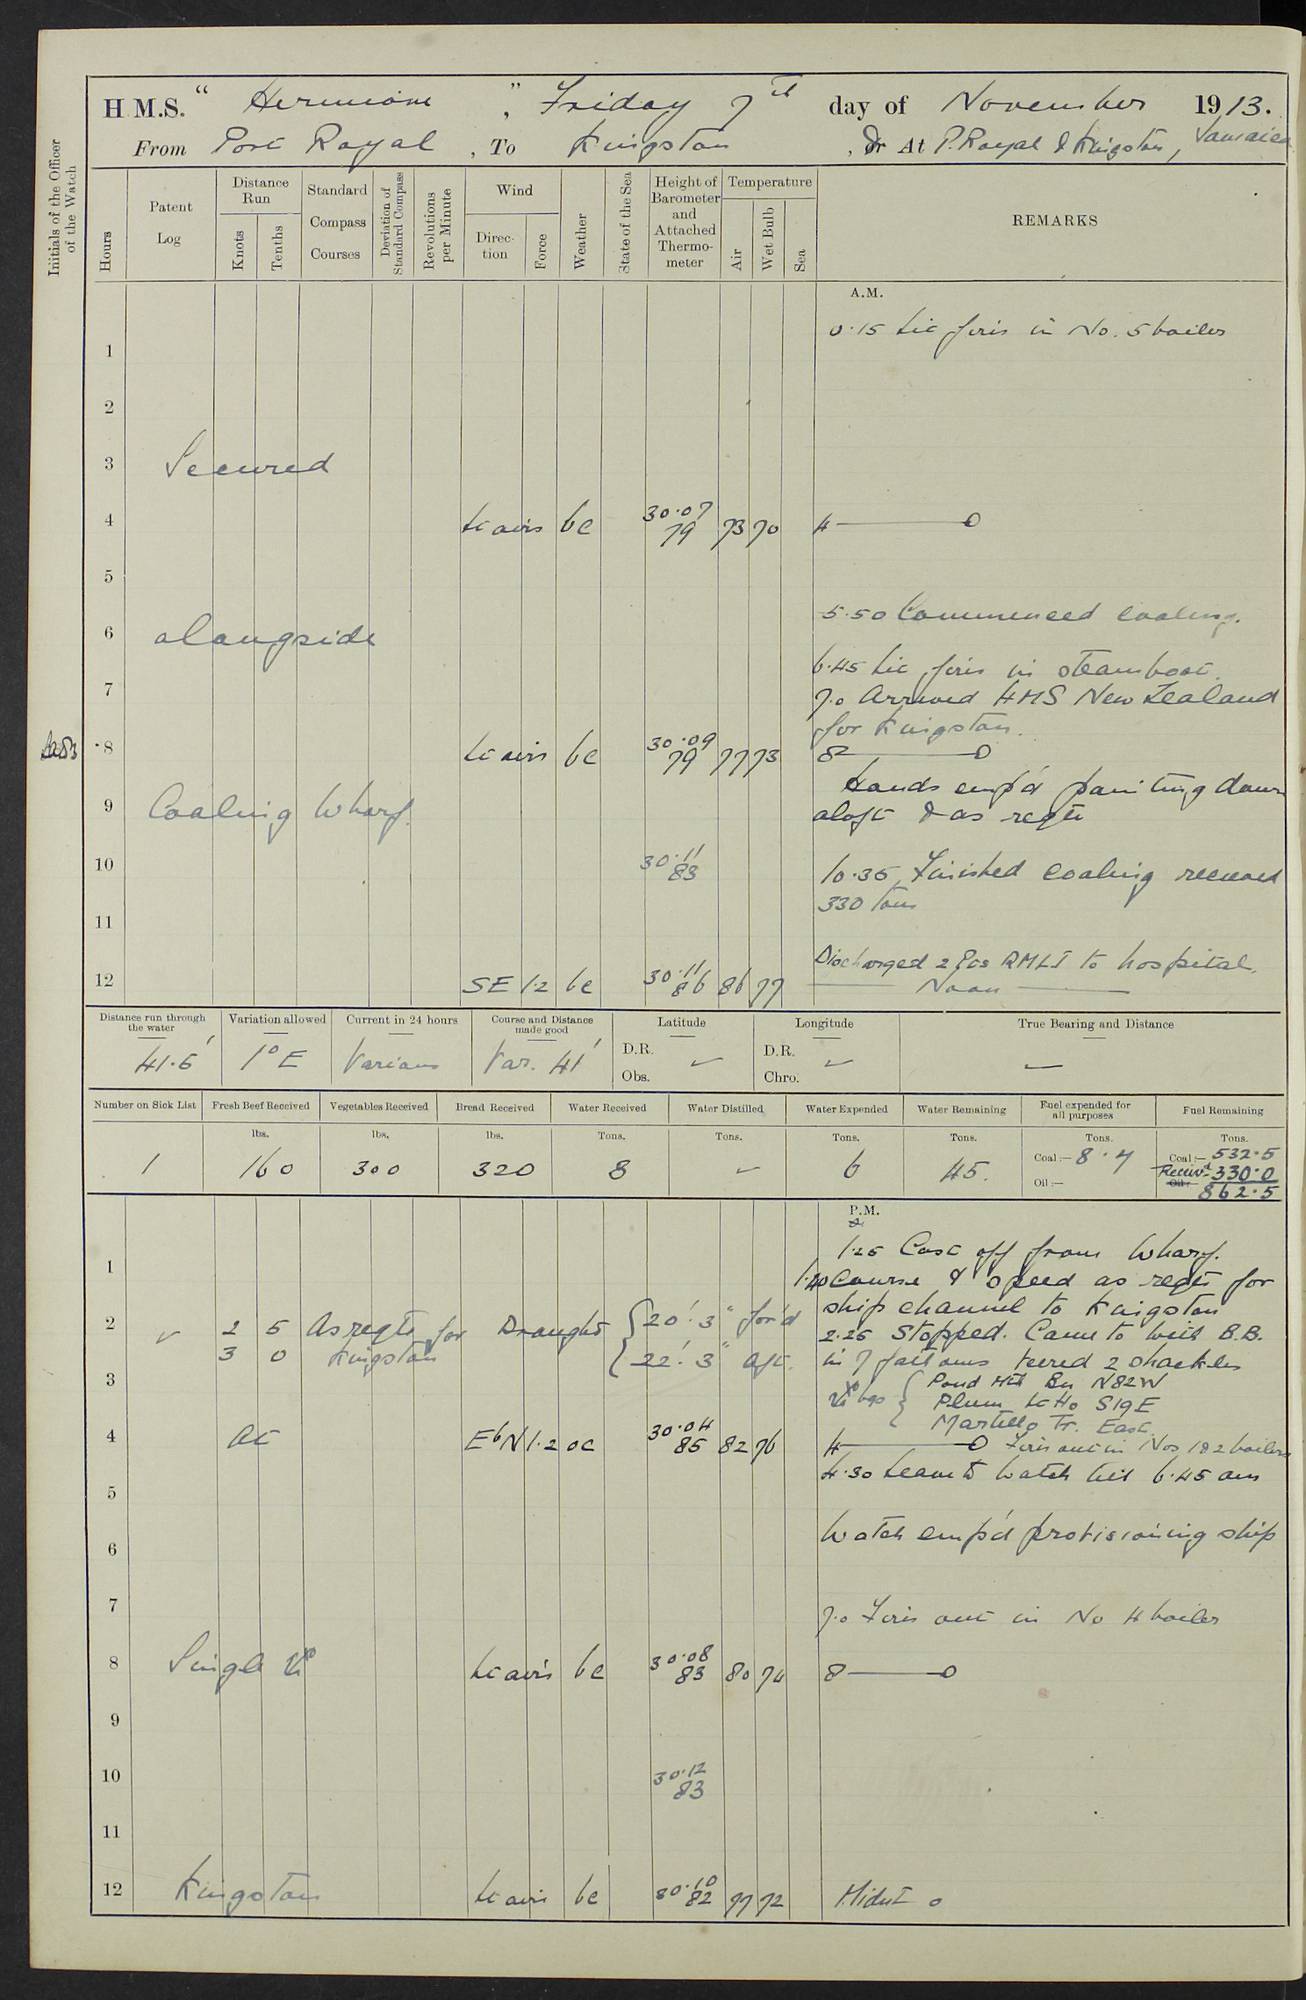 H.M.S. " Hermione ", Friday 7th day of November 1913.
From Port Royal, To Kingston, Or At P. Royal & Kingston, Jamaica
Initials of the Officer of the Watch
Hours
Patent Log
Distance Run
Knots
Tenths
Standard Compass Courses
Deviation of Standard Compass
Revolutions per Minute
Wind
Direction
Force
Weather
State of the Sea
Height of Barometer and Attached Thermometer
Temperature
Air
Wet Bulb
Sea
REMARKS
A.M.
0.15 Lit fires in No. 5 boiler
1
2
3 Secured
4 Lt airs bc 30.07 79 73 70 4 ——— 0
5
5.50 Commenced coaling.
6 alongside
6.45 Lit fires in steamboat.
7 7.0 Arrived HMS New Zealand
for Kingston.
8 Lt airs bc 30.09 79 77 73 8 ——— 0
Hands emp'd painting down
9 Coaling Wharf. aloft & as reqte
10 30.11 83 10.35 Finished coaling received
330 tons
11
Discharged 2 Ptes RMLI to hospital.
12 SE 1.2 bc 30.11 86 86 77 —— Noon ——
Distance run through the water
Variation allowed
Current in 24 hours
Course and Distance made good
Latitude
Longitude
True Bearing and Distance
41.5' 1° E Various Var. 41' D.R. ✓ D.R. ✓ —
Obs. Chro.
Number on Sick List
Fresh Beef Received
Vegetables Received
Bread Received
Water Received
Water Distilled
Water Expended
Water Remaining
Fuel expended for all purposes
Fuel Remaining
lbs. lbs. lbs. Tons. Tons. Tons. Tons. Tons. Tons.
1 160 300 320 8 ✓ 6 45. Coal:— 8.4 Coal:— 532.5
Receivd 330.0
Oil:— Oil:— 862.5
P.M.
1.25 Cast off from Wharf.
1 1.40 Course & speed as reqte for
ship channel to Kingston
2 ✓ 2 5 As reqte for Draught { 20' 3" for'd 2.25 Stopped. Came to with B.B.
3 0 Kingston { 22' 3" aft. in 7 fathoms veered 2 shackles
3 { Pond Mill Bn N82W
Plum Lt Ho S19E
Martello Tr. East.
4 At EbN 1.2 oc 30.04 85 82 76 4 ——— 0 Fires out in Nos 1 & 2 boilers
4.30 Leave to Watch till 6.45 am
5
Watch emp'd provisioning ship
6
7 7.0 Fires out in No 4 boiler
8 Single Lt airs bc 30.08 83 80 74 8 ——— 0
9
10 30.12 83
11
12 Kingston Lt airs bc 30.10 82 77 72 Midnt 0